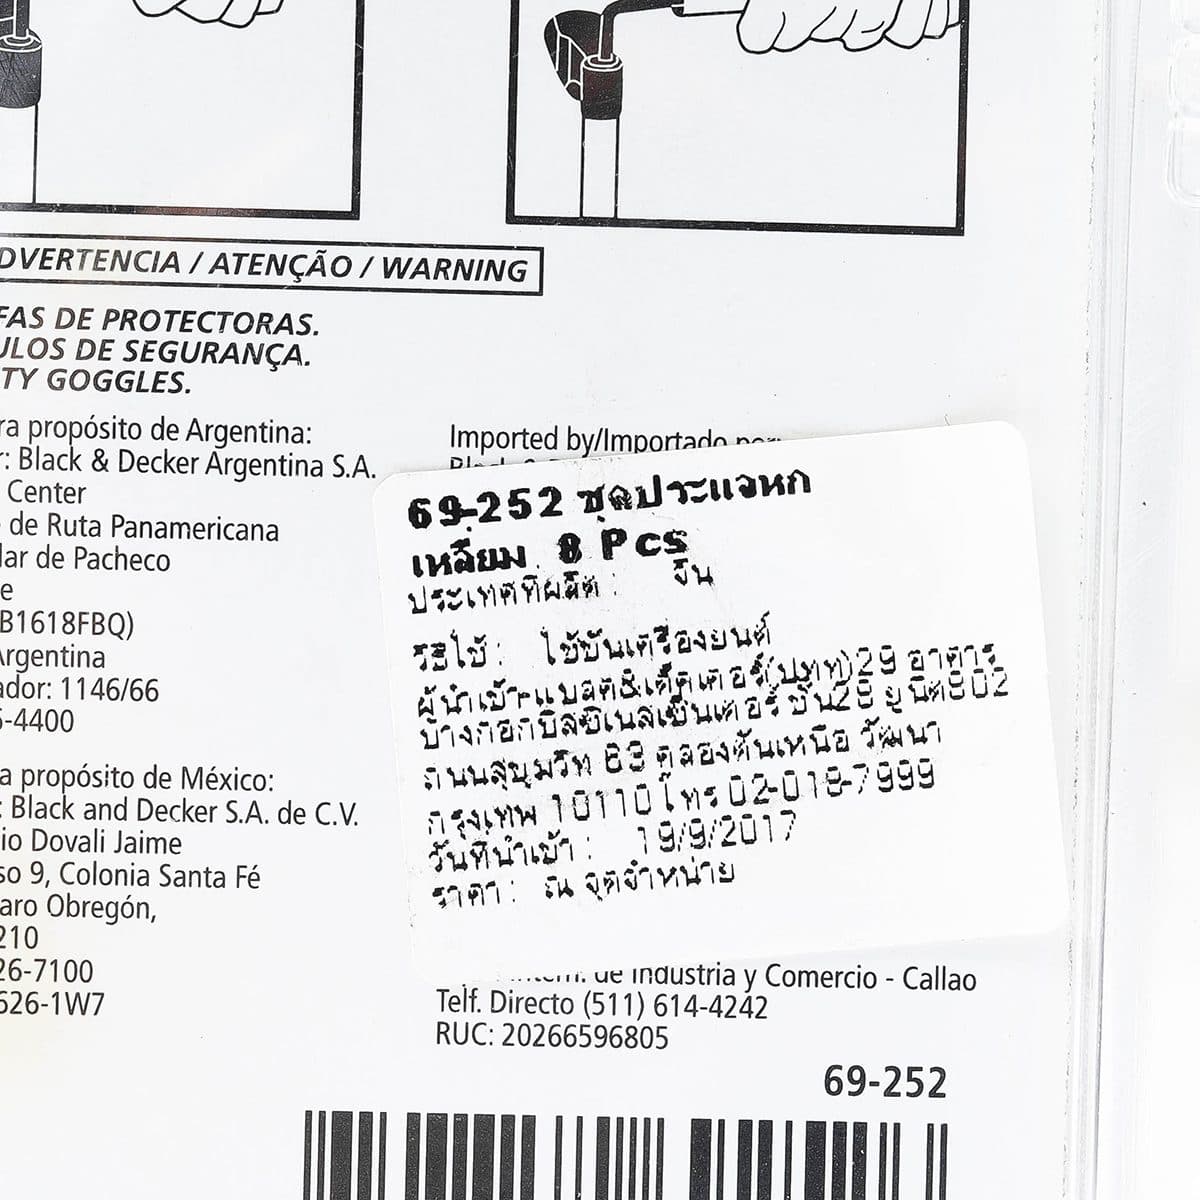 DVERTENCIA / ATENÇÃO / WARNING
FAS DE PROTECTORAS.
ULOS DE SEGURANÇA.
TY GOGGLES.
ra propósito de Argentina:
r: Black & Decker Argentina S.A.
Center
de Ruta Panamericana
lar de Pacheco
e
B1618FBQ)
Argentina
ador: 1146/66
5-4400
a propósito de México:
: Black and Decker S.A. de C.V.
io Dovali Jaime
so 9, Colonia Santa Fé
aro Obregón,
210
26-7100
626-1W7
Imported by/Importado por:
69-252 ชุดประแจหก
เหลี่ยม 8 Pcs
ประเทศที่ผลิต : จีน
วิธีใช้ : ใช้ขันเครื่องยนต์
ผู้นำเข้า-แบลค&เด็คเคอร์(ปทท)29 อาคาร
บางกอกบิสซิเนสเซ็นเตอร์ ชั้น28 ยูนิต802
ถนนสุขุมวิท 63 คลองตันเหนือ วัฒนา
กรุงเทพ 10110 โทร 02-018-7999
วันที่นำเข้า : 19/9/2017
ราคา : ณ จุดจำหน่าย
de Industria y Comercio - Callao
Telf. Directo (511) 614-4242
RUC: 20266596805
69-252